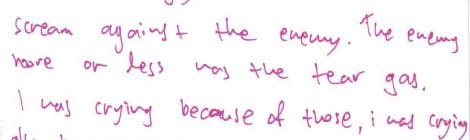 scream against the enemy. The enemy
more or less was the tear gas.
I was crying because of those, i was crying